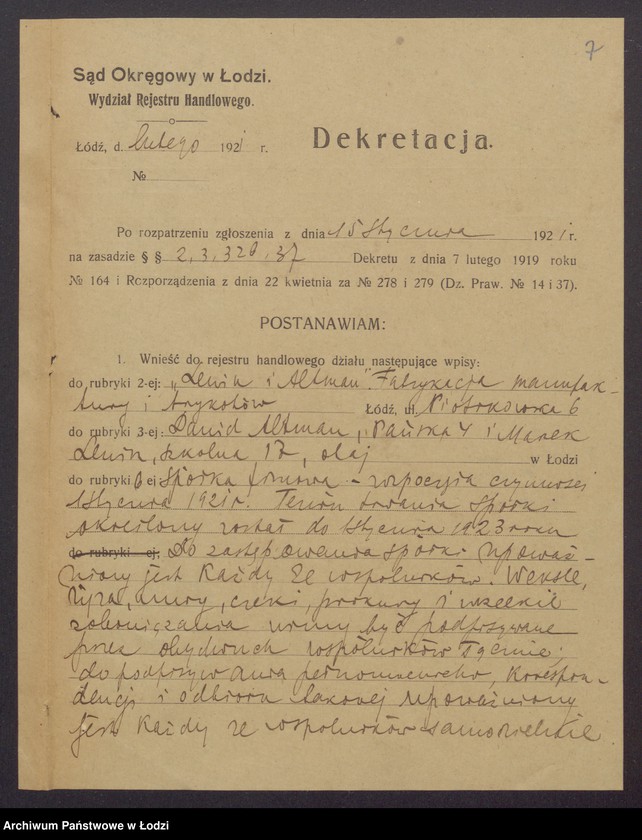 7
Sąd Okręgowy w Łodzi.
Wydział Rejestru Handlowego.
Łódź, d. lutego 1921 r.
№
Dekretacja.
Po rozpatrzeniu zgłoszenia z dnia 15 Stycznia 1921 r.
na zasadzie § § 2, 3, 37 Dekretu z dnia 7 lutego 1919 roku
№ 164 i Rozporządzenia z dnia 22 kwietnia za № 278 i 279 (Dz. Praw. № 14 i 37).
POSTANAWIAM:
1. Wnieść do rejestru handlowego działu następujące wpisy:
do rubryki 2-ej: „Lewin i Altman". Fabrykacja manufak-
tury i trykotów Łódź, ul. Piotrkowska 6
do rubryki 3-ej: Dawid Altman, Pańska 4 i Marek
Lewin, Szkolna 17, obaj w Łodzi
do rubryki 6 ej Spółka firmowa – rozpoczęła czynności
1 Stycznia 1921 r. Termin trwania Spółki
określony został do 1 Stycznia 1923 roku
do rubryki -ej: Do zastępowania spółki upoważ-
niony jest każdy ze wspólników. Weksle,
żyra, umowy, czeki, prokury i wszelkie
zobowiązania winny być podpisywane
przez obydwóch wspólników łącznie;
do podpisywania korespon-
dencji i odbioru takowej upoważniony
jest każdy ze wspólników samodzielnie
Archiwum Państwowe w Łodzi